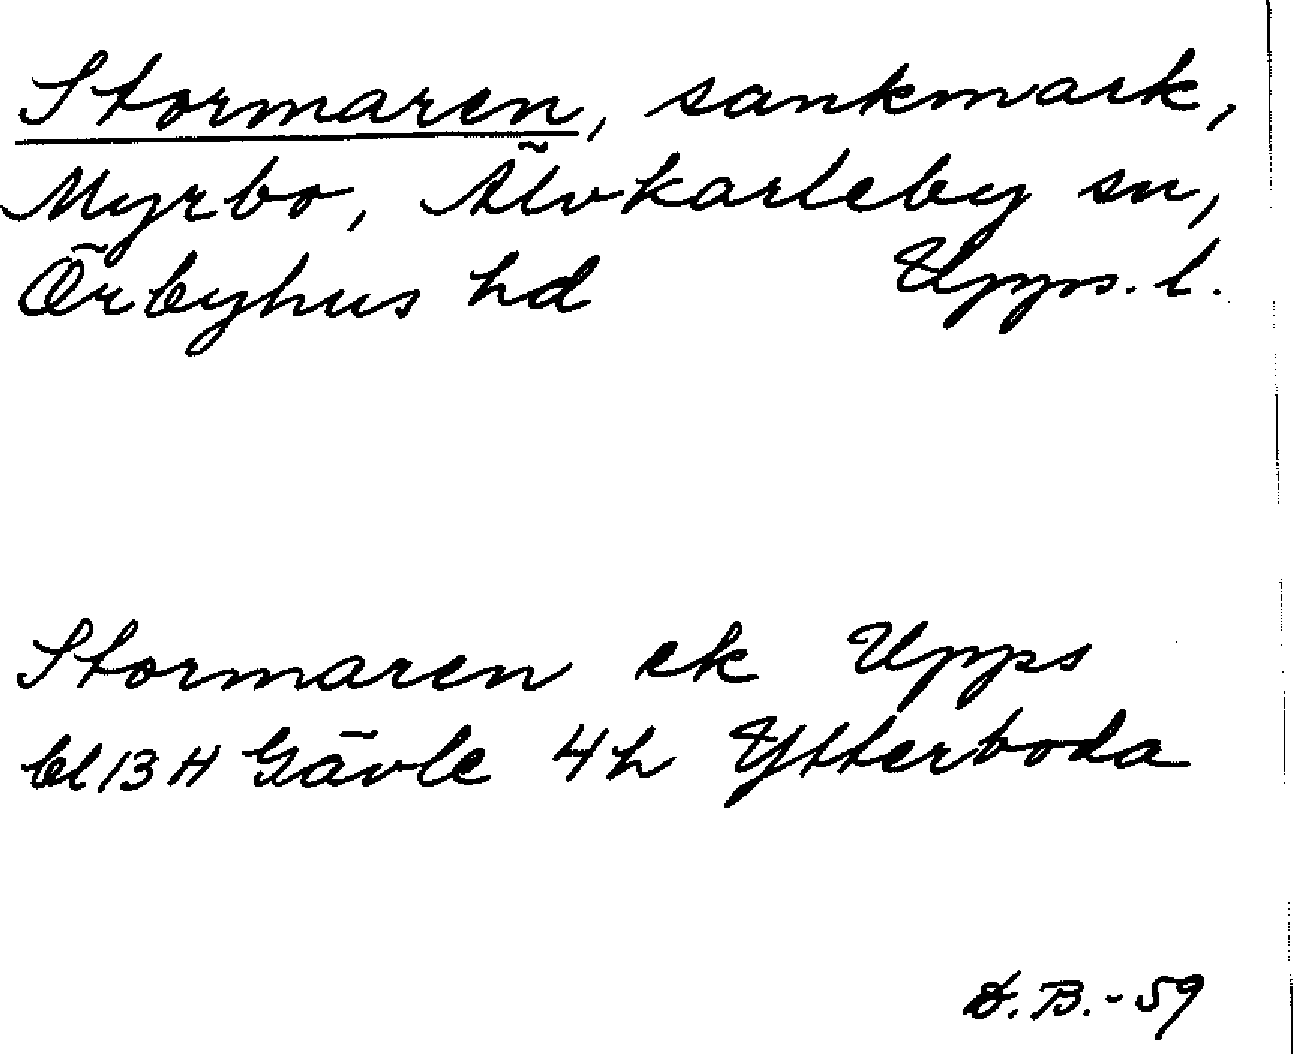 Stormaren, sankmark,
Myrbo, Älvkarleby sn,
Örbyhus hd Upps. l.
Stormaren ek Upps
bl 13 H Gävle 4h Ytterboda
D. B. - 59